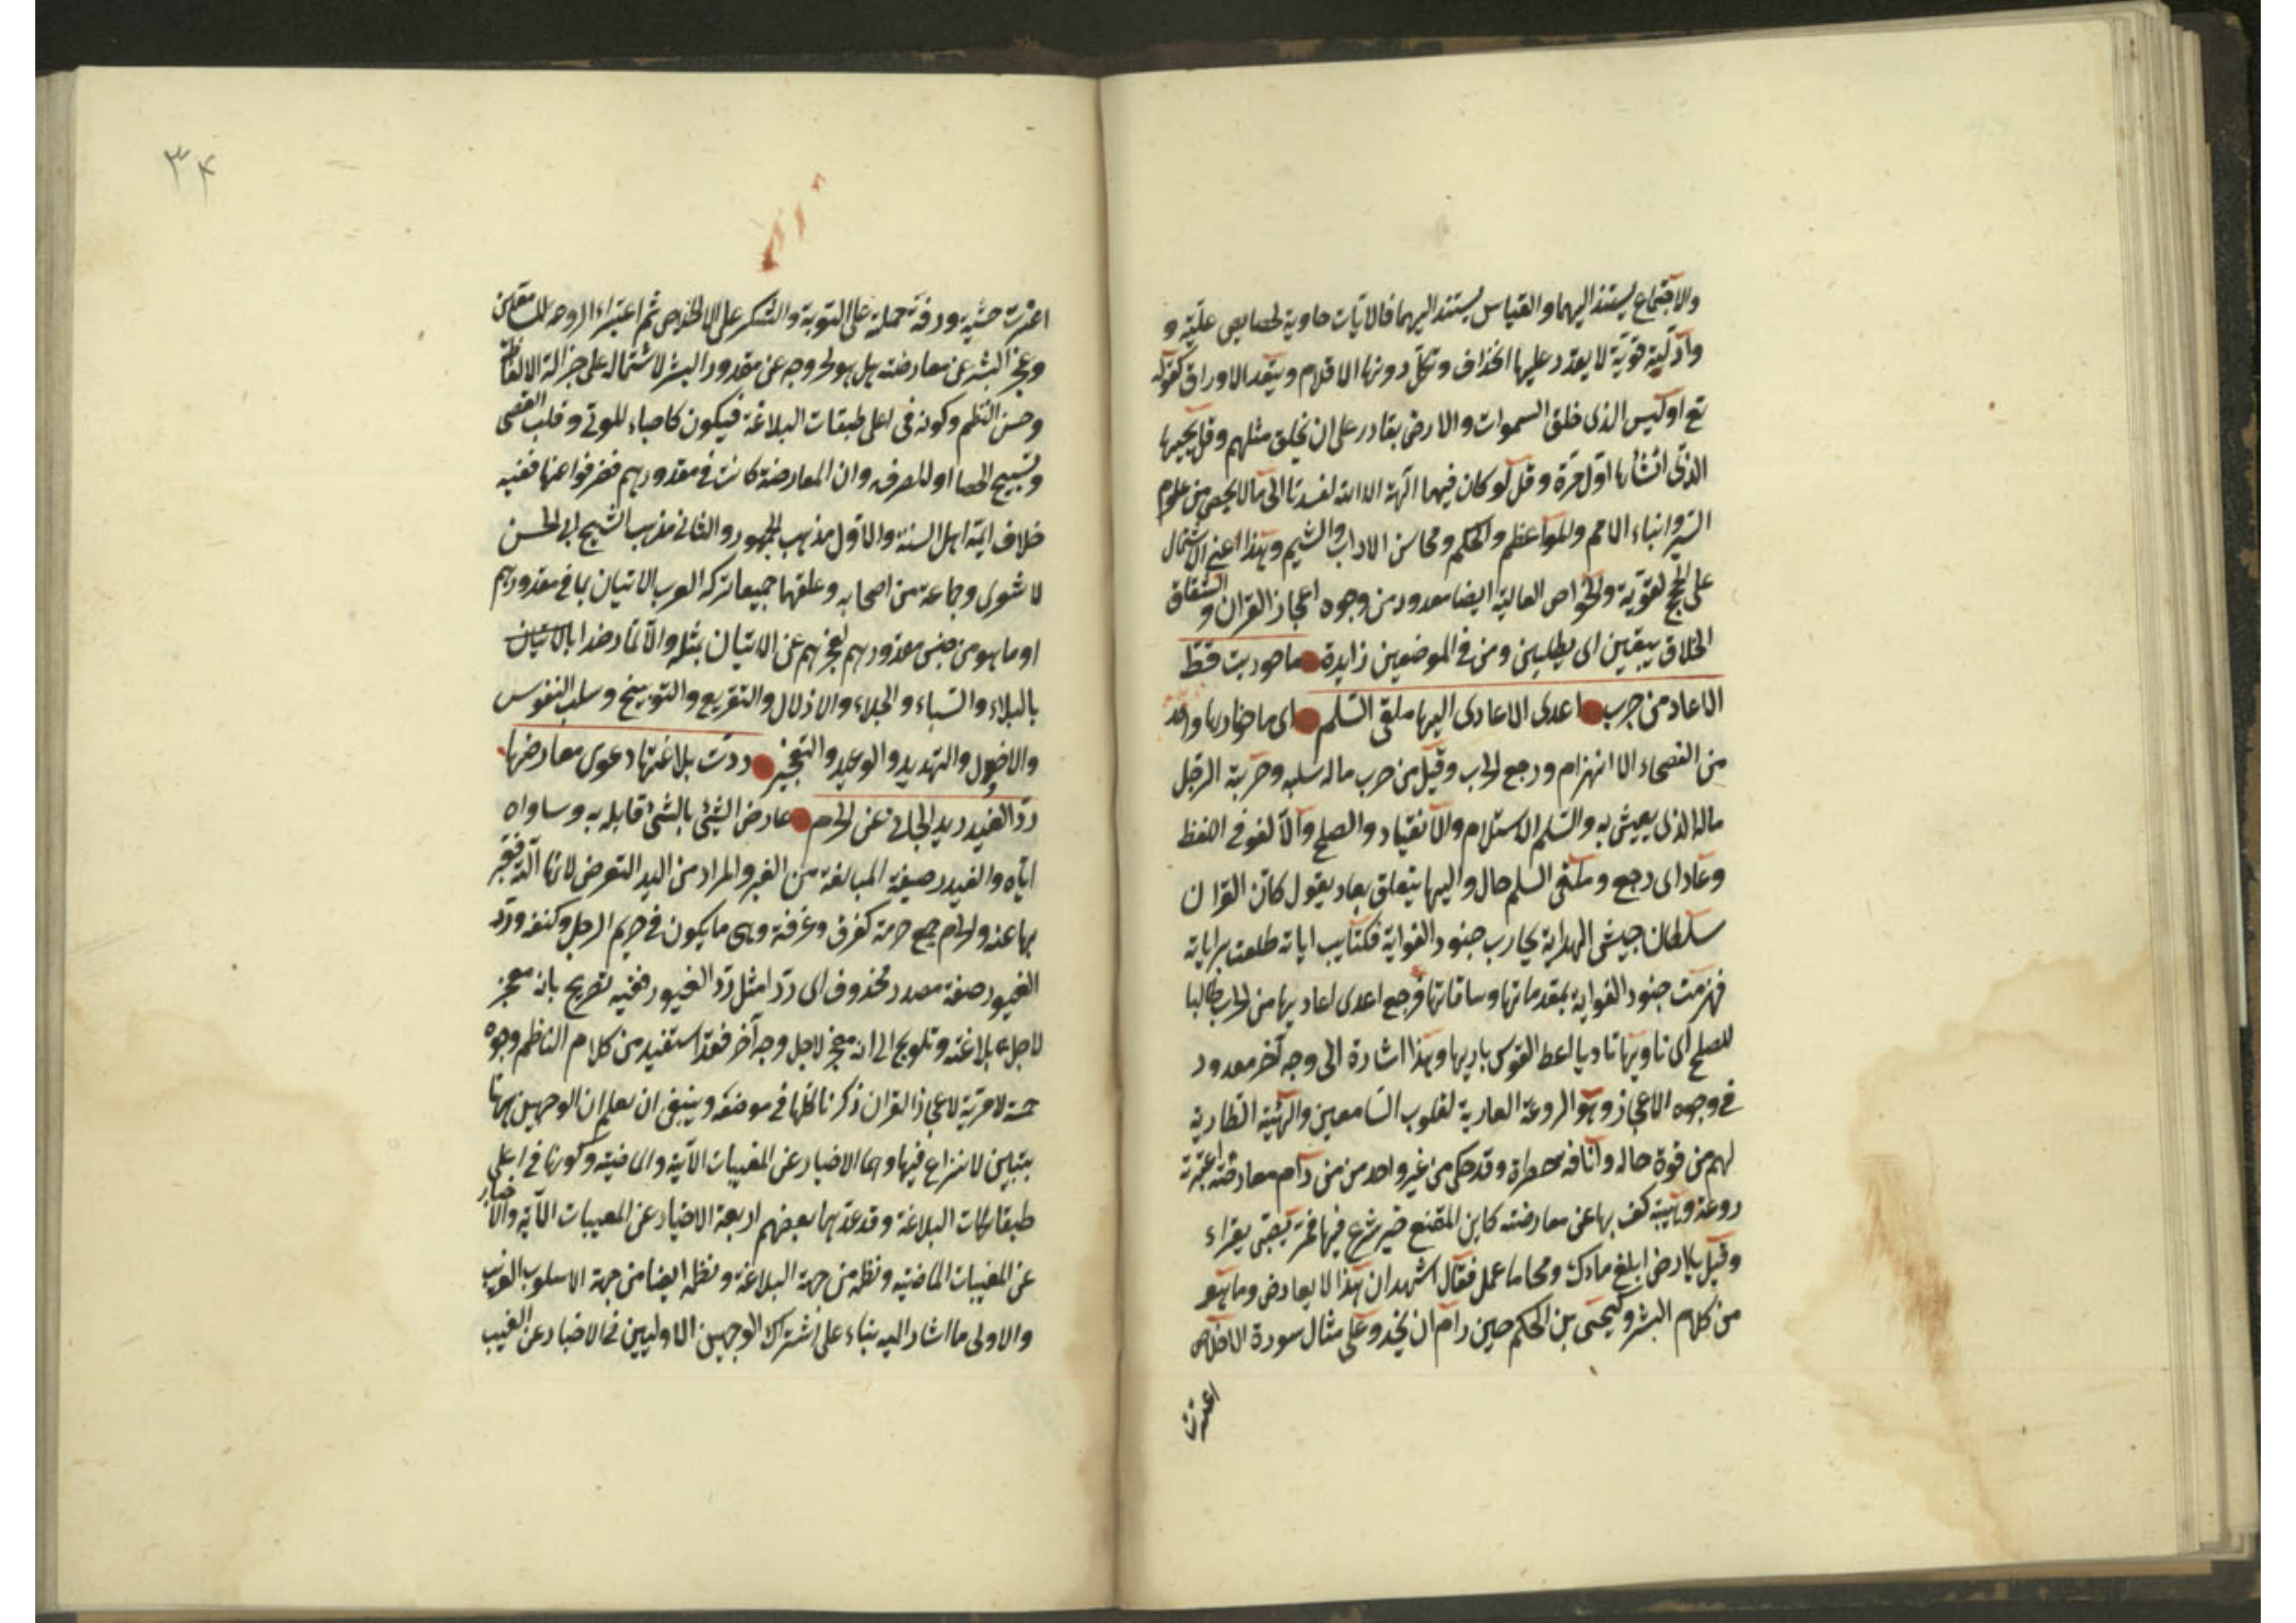 والاجماع يستند اليهما والقياس يستند اليهما فالايات حاوية لخصايص علية و
وادلية قوية لا يعدد عليها الخذاف وتكل دونها الاقلام وينفد الاوراق كقوله
تع اوليس الذى خلق السموات والارض بقادر على ان يخلق مثلهم وقل يحييها
الذى انشأها اول مرة وقل لو كان فيهما آلهة الا الله لفسدتا الى ما لا يحصى من علوم
السير وانباء الامم والمواعظ والحكم ومحاسن الاداب والشيم وهذا اعنى الاشتمال
على الحجج القوية والخواص العالية ايضا معدود من وجوه اعجاز القران و الشقاق
الخلاق يبقين اى يطلبن ومن فى الموضعين زايدة ما حوربت قط
الا عاد من حرب اعدى الاعادى اليها ملقى السلم اى ما حاربها واحد
من الفصحاء الا انهزام ورجع الحرب وقيل من حرب ماله سلبه وحريبة الرجل
ماله الذى يعيش به والسلم الاستلام والانقياد والصلح والالغو فى اللفظ
وعاد اى رجع وملقى السلم حال واليها يتعلق بعاد يقول كان القران
سلطان جيش الهداية يحارب جنود الغواية فكتايب اياته طلعت براياته
فهزمت جنود الغواية بمقدماتها وساقاتها فرجع اعدى اعاديها من الحرب طالبا
للصلح اى ناويها ناديا اعط القوس باريها وهذا اشارة الى وجه آخر معدود
فى وجوه الاعجاز وهو الروعة العارية لقلوب السامعين والهيبة الطارية
لهم من قوة حاله وانافة خطراته وقد حكى من غير واحد من من رام معارضته اعترته
روعة وهيبة كف بها عن معارضته كابن المقنع حين شرع فيها فمر بصبى يقراء
وقيل يا ارض ابلعى ماءك ومحا ما عمل فقال اشهد ان هذا لا يعارض وما هو
من كلام البشر وكيحيى بن الحكم حين رام ان يحذو على مثال سورة الاخلاص
اعترت
٣٤
اعترت خشية ورقة حملته على التوبة والشكر على الاخلاص ثم اعتبراء الروحه للسامعين
وعجز البشر عن معارضته هل هو لخروجه عن مقدور البشر لاشتماله على جزالة الالفاظ
وحسن النظم وكونه فى اعلى طبقات البلاغة فيكون كاحياء الموتى وقلب العصى
وتسبيح الحصا او للصرفه وان المعارضة كانت فى مقدورهم فصرفوا عنها ففيه
خلاف ائمة اهل السنة والاول مذهب الجمهور والثانى مذهب الشيخ ابى الحسن
لاشعرى وجماعة من اصحابه وعلقهما جميعا تركه العرب الاتيان بما فى مقدورهم
او ما هو من جنس مقدورهم لعجزهم عن الاتيان بمثله والا لما رضوا بالاتيان
بالبلاء والسباء والجلاء والاذلال والتقريع والتوبيخ وسلب النفوس
والاموال والتهديد والوعيد والتعجيز ردت بلاغتها دعوى معارضها
رد الغيور يد الجانى عن الحرم عارض الشئ بالشئ قابله به وساواه
اياه والغيور صيغة المبالغة من الغير والمراد من اليد التعرض لانها آلته فعبر
بها عنه والحرم جمع حرمة كغرف وغرفة وهى ما يكون فى حريم الرجل وكنفه ورد
الغيور صفة مصدر محذوف اى ردا مثل رد الغيور ففيه تصريح بانه معجز
لاجل بلاغته وتلويح الى انه معجز لاجل وجه آخر فقد استفيد من كلام الناظم وجوه
خمسة لاعجاز القران ذكرنا كلها فى موضعه وينبغى ان يعلم ان الوجهين ههنا
يتبين لا نزاع فيها وهما الاخبار عن المغيبات الآتية والماضية وكونها فى اعلى
طبقات البلاغة وقد عدهما بعضهم اربعة الاخبار عن المغيبات الآتية والاخبار
عن المغيبات الماضية ونظمه من جهة البلاغة ونظمه ايضا من جهة الاسلوب الغريب
والاولى ما اشار اليه بناء على اشتراك الوجهين الاوليين فى الاخبار عن الغيب